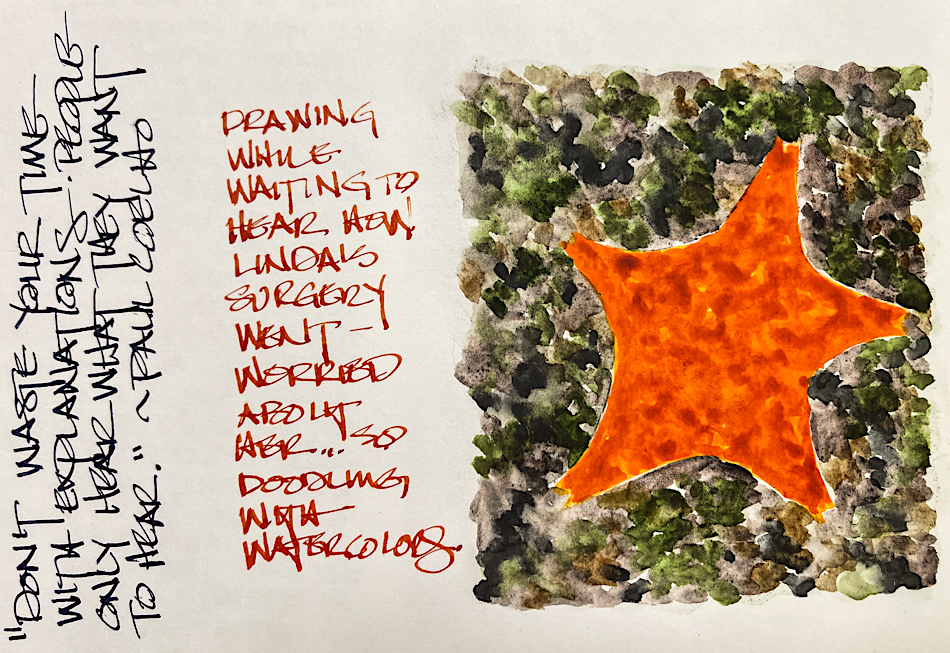 "DON'T WASTE YOUR TIME
WITH EXPLANATIONS. PEOPLE
ONLY HEAR WHAT THEY WANT
TO HEAR." ~ PAUL COELHO
DRAWING
WHILE
WAITING TO
HEAR HOW
LINDA'S
SURGERY
WENT -
WORRIED
ABOUT
HER... SO
DOODLING
WITH
WATERCOLORS.